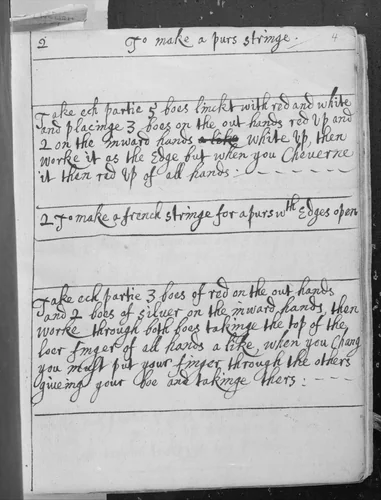 2 To make a purs stringe. 4
Take ech partie 5 boes linckt with red and white
and placinge 3 boes on the out hands red up and
2 on the inward hands a like white up, then
worke it as the Edge but when you Cheverne
it then red up of all hands:
2 To make a french stringe for a purs wth Edges open
Take ech partie 3 boes of red on the out hands
and 2 boes of silver on the inward hands, then
worke through both boes takinge the top of the
loer finger of all hands a like, when you Chang
you must put your finger through the others
giveing your boe and takinge thers: